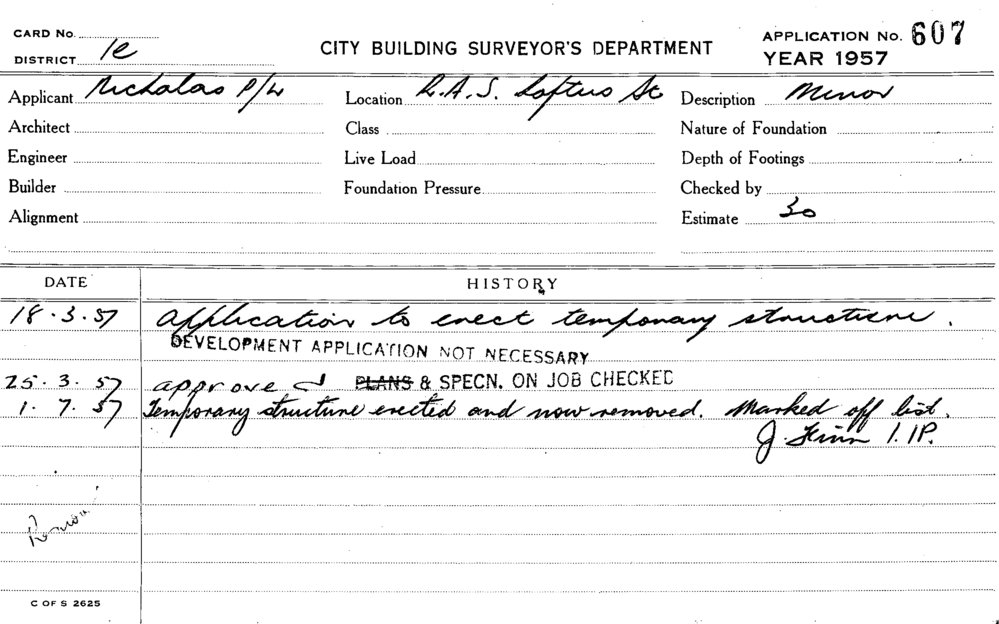 CARD No.
DISTRICT 1e
CITY BUILDING SURVEYOR'S DEPARTMENT
APPLICATION No. 607
YEAR 1957
Applicant Nicholas P/L Location R.A.S. Loftus St Description Minor
Architect Class Nature of Foundation
Engineer Live Load Depth of Footings
Builder Foundation Pressure Checked by
Alignment Estimate 30
DATE HISTORY
18.3.57 Application to erect temporary structure.
DEVELOPMENT APPLICATION NOT NECESSARY
25.3.57 approved PLANS & SPECN. ON JOB CHECKED
1.7.57 Temporary structure erected and now removed. Marked off list.
J. Finn
C OF S 2625